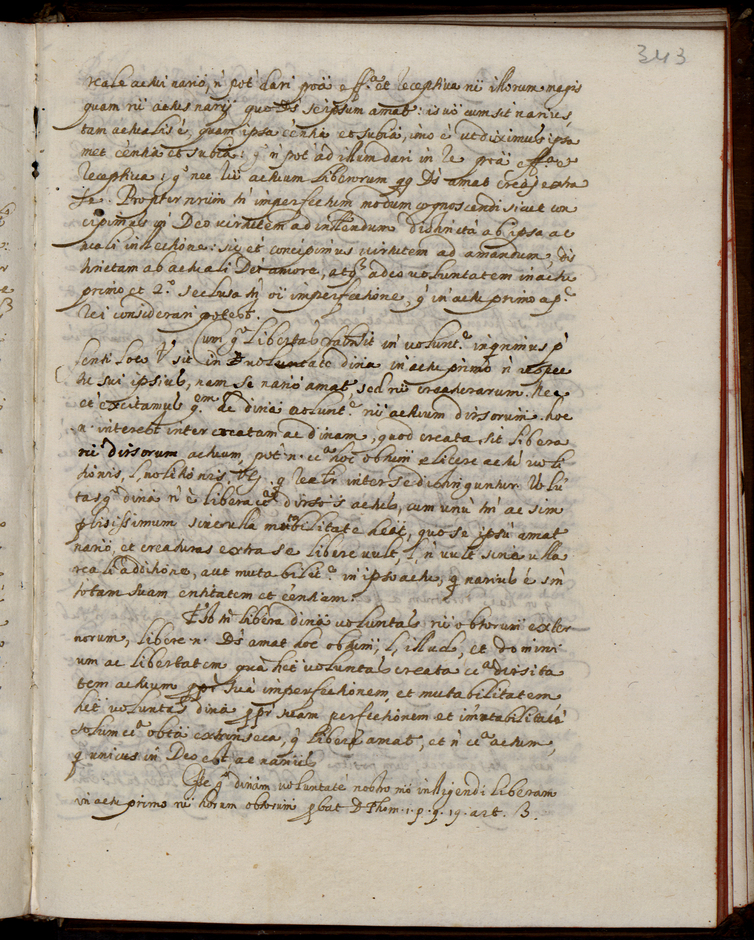 343
reale actui nario, n pot dari poã effa et receptiva nii illorum magis
quam rii actus narij quo Ds seipsum amat: is uo cum sit narius,
tam actualis è, quam ipsa centia et subia, imo è ut diximus ipsa
met centia et subia: q n pot ad illum dari in re poã effa
receptiva: q nec lii actuum liberorum qq Ds amat creas extra
se. Propter nrum tn imperfectum modum cognoscendi sicut con
cipimus in Deo virtutem ad intldendum distincta ab ipsa ac
tuali intlectione: sic et concipimus virtutem ad amandum, dis
tinctam ab actuali Dei amore, atq adeo voluntatem in actu
primo et 2º seclusa tn oi imperfectione, q in actu primo a p.
rei considerari potest.
Cum q Libertas sit in volunt.e inqrimus p
senti loco sit in voluntate dina in actu primo n respec
tu sui ipsius, nam se nario amat sed rii creaturarum. Nec
et excitamus q.em de dina volunt.e rii actuum dirsorum. hoc
n. interest inter creatam ac dinam, quod creata sit libera
rii dirsorum actuum, pot n. c.a hoc obtum elicere actu voli
tionis, l, nolitionis, q realr inter se distinguntur. Volu
tas q dina n è libera c.a dirsos actus, cum unu tn ac sim
plisissimum sine ulla mutabilitate heat, quo se ipsu amat
nario, et creaturas extra se libere vult, l, n vult sine ulla
reali additione, aut mutabilit.e in ipso actu, q narius è sm
totam suam entitatem et centiam.
Est tn libera dina voluntas rii obtorum exter
norum, libere n. Ds amat hoc obtum, l, illud, et domini
um ac libertatem qua het voluntas creata c.a dirsita
tem actuum ppr sua imperfectionem, et mutabilitatem
het voluntas dina ppr suam perfectionem et imutabilitate
solum c.a obta extrinseca, q libere amat, et n c.a actum,
q unicus in Deo est, ac narius
De q dinam voluntate nostro mo intligendi liberam
in actu primo rii horum obtorum pbat D Thom. 1. p. q. 19. art. 3.